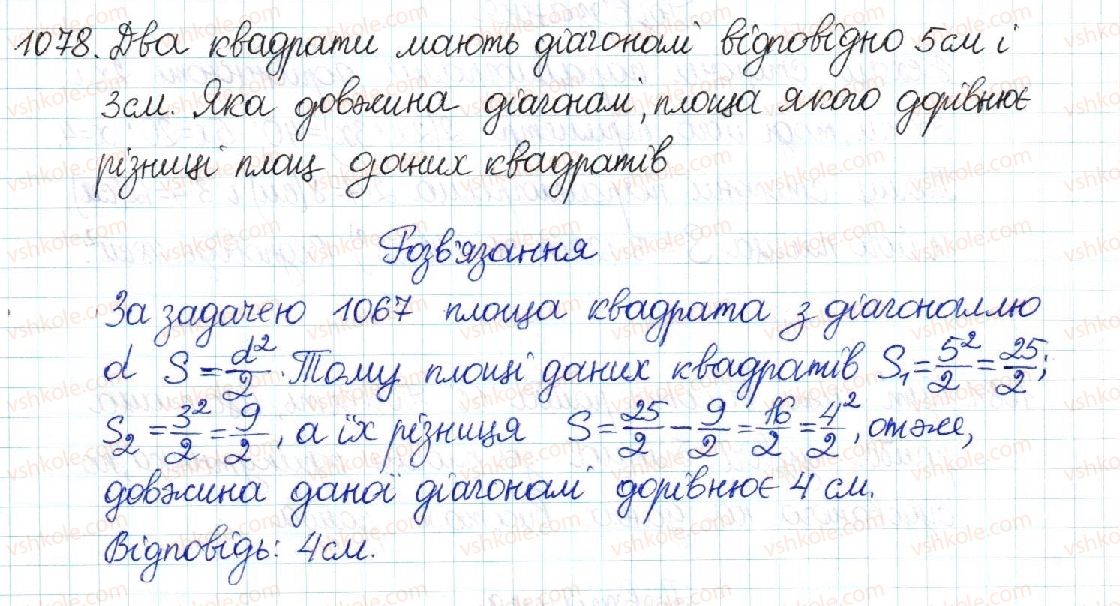 1078. Два квадрати мають діагоналі відповідно 5 см і
3 см. Яка довжина діагоналі, площа якого дорівнює
різниці площ даних квадратів
Розв'язання
За задачею 1067 площа квадрата з діагоналлю
d S = d²/2. Тому площі даних квадратів S₁ = 5²/2 = 25/2;
S₂ = 3²/2 = 9/2, а їх різниця S = 25/2 - 9/2 = 16/2 = 4²/2, отже,
довжина даної діагоналі дорівнює 4 см.
Відповідь: 4 см.